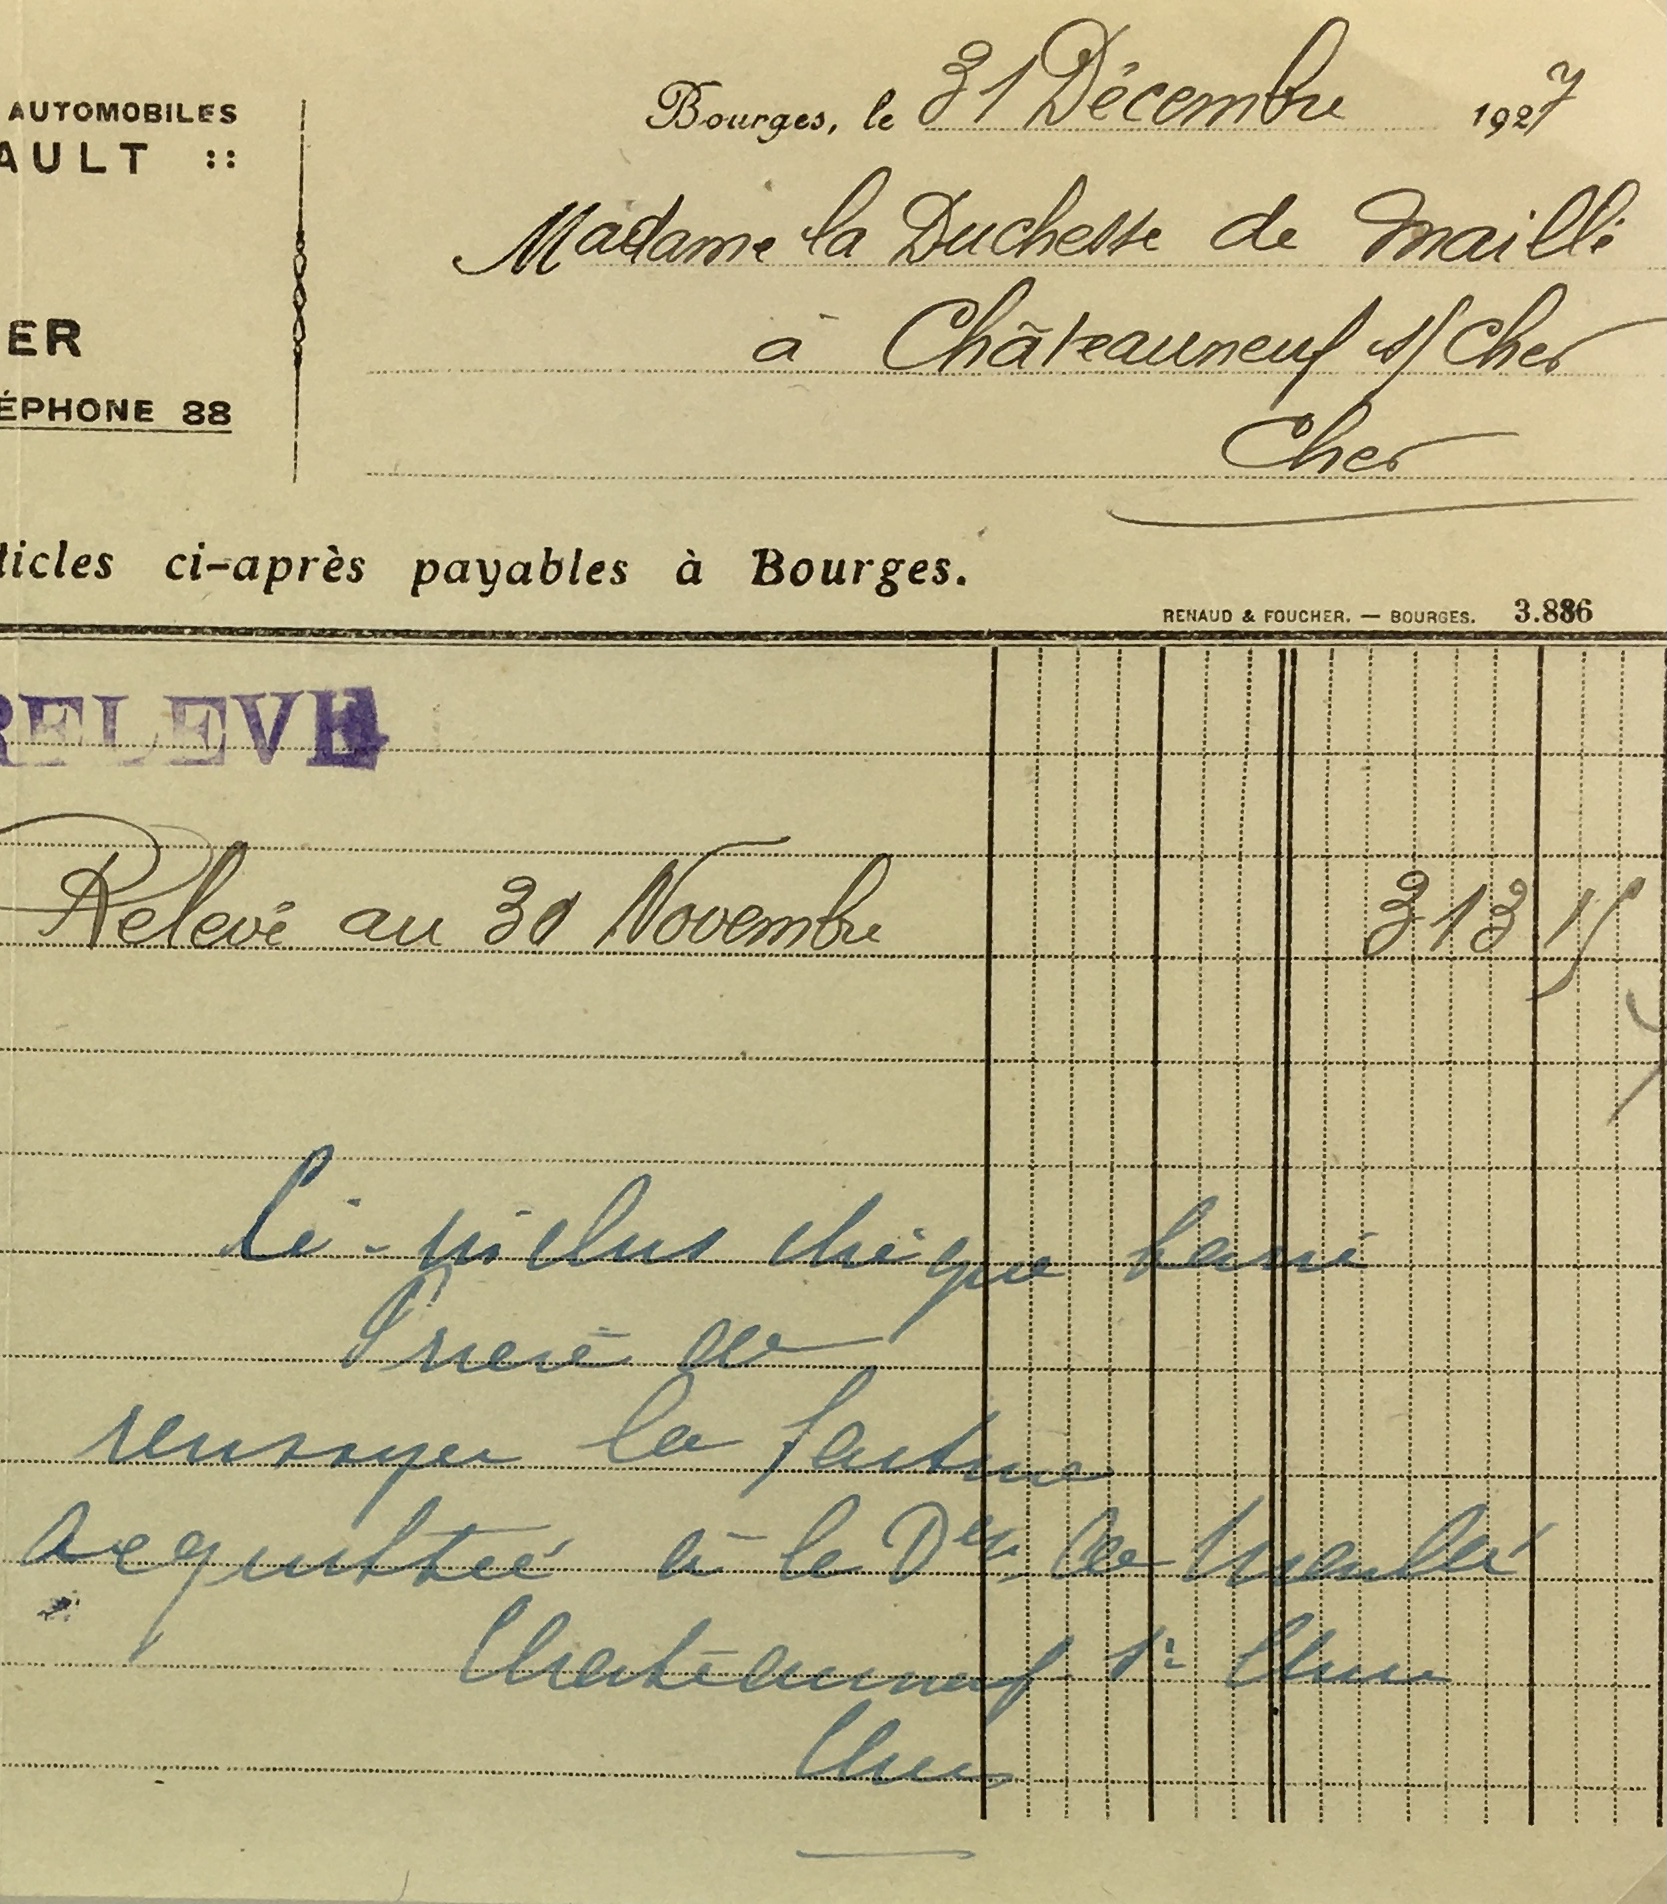 AUTOMOBILES
AULT ::
ER
ÉPHONE 88
Bourges, le 31 Décembre 1927
Madame la Duchesse de Maillé
à Châteauneuf s/ Cher
Cher
ticles ci-après payables à Bourges.
RENAUD & FOUCHER. — BOURGES. 3.886
RELEVE
Relevé au 30 Novembre 313 15
Ci-inclus chèque barré
Prière de
renvoyer la facture
acquittée à la Dsse de Maillé
Chateauneuf sr Cher
Cher